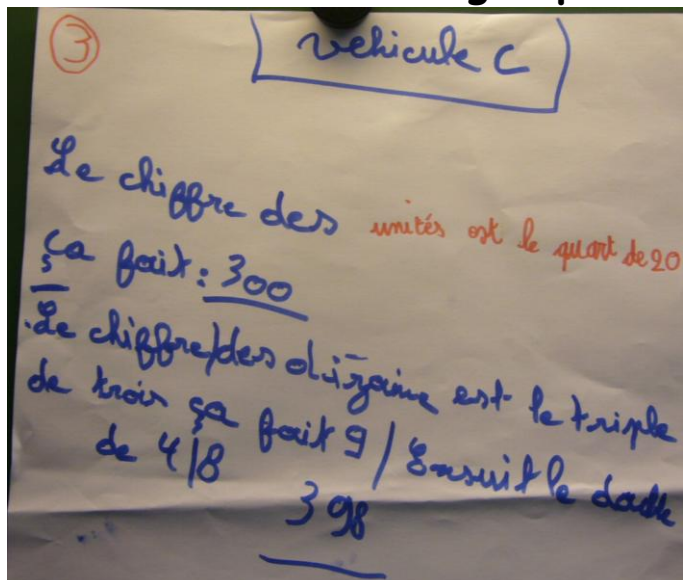 3
vehicule C
Le chiffre des unités est le quart de 20
ça fait : 300
.Le chiffre/des dizaine est le triple
de trois ça fait 9 / Ensuit le double
de 4/8
398